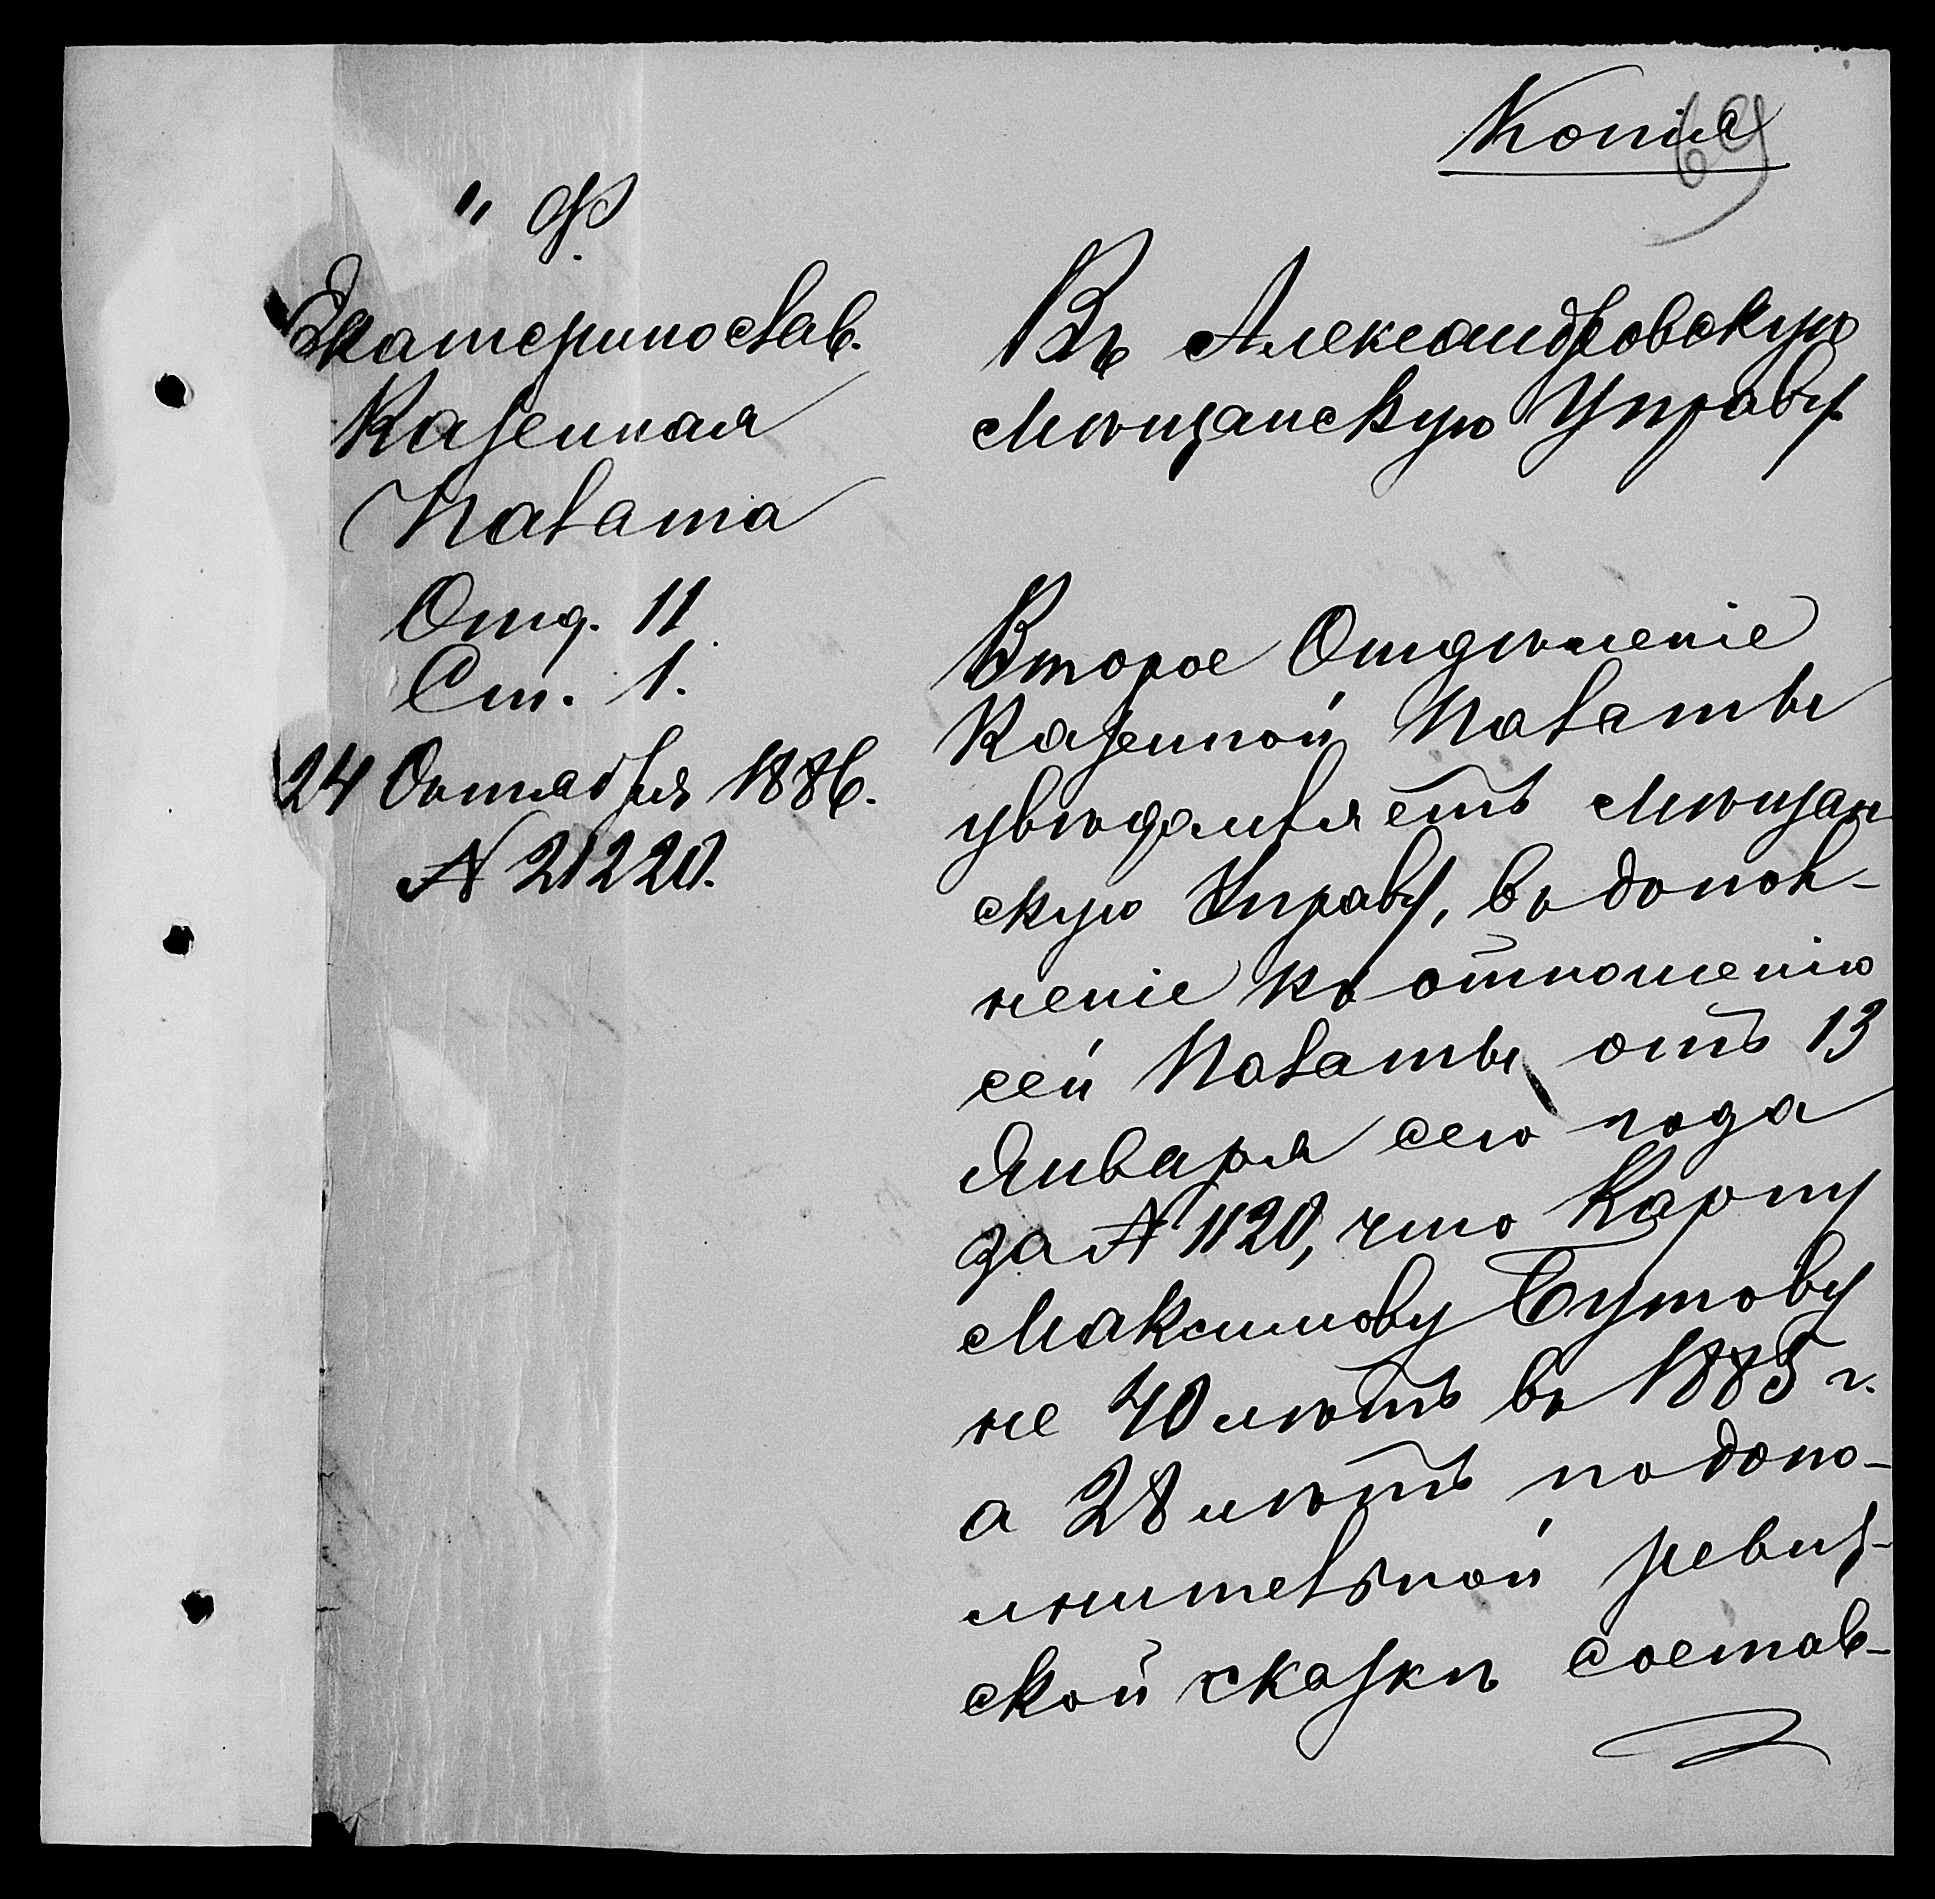 Копія
69
" Ф.
Екатеринослав.
Казенная
Палата
Отд. II
Ст. 1.
24 Октября 1886.
№ 21220.
Въ Александровскую
Мѣщанскую Управу.
Второе Отдѣленіе
Казенной Палаты
увѣдомляетъ Мѣщан
скую Управу, въ допол-
неніе къ отношенію
сей Палаты отъ 13
Января сего года
за № 1120, что Карпу
Максимову Бутову
не 40 лѣтъ въ 1885 г.
а 28 лѣтъ по допо-
лнительной ревиз-
ской сказкѣ состав-